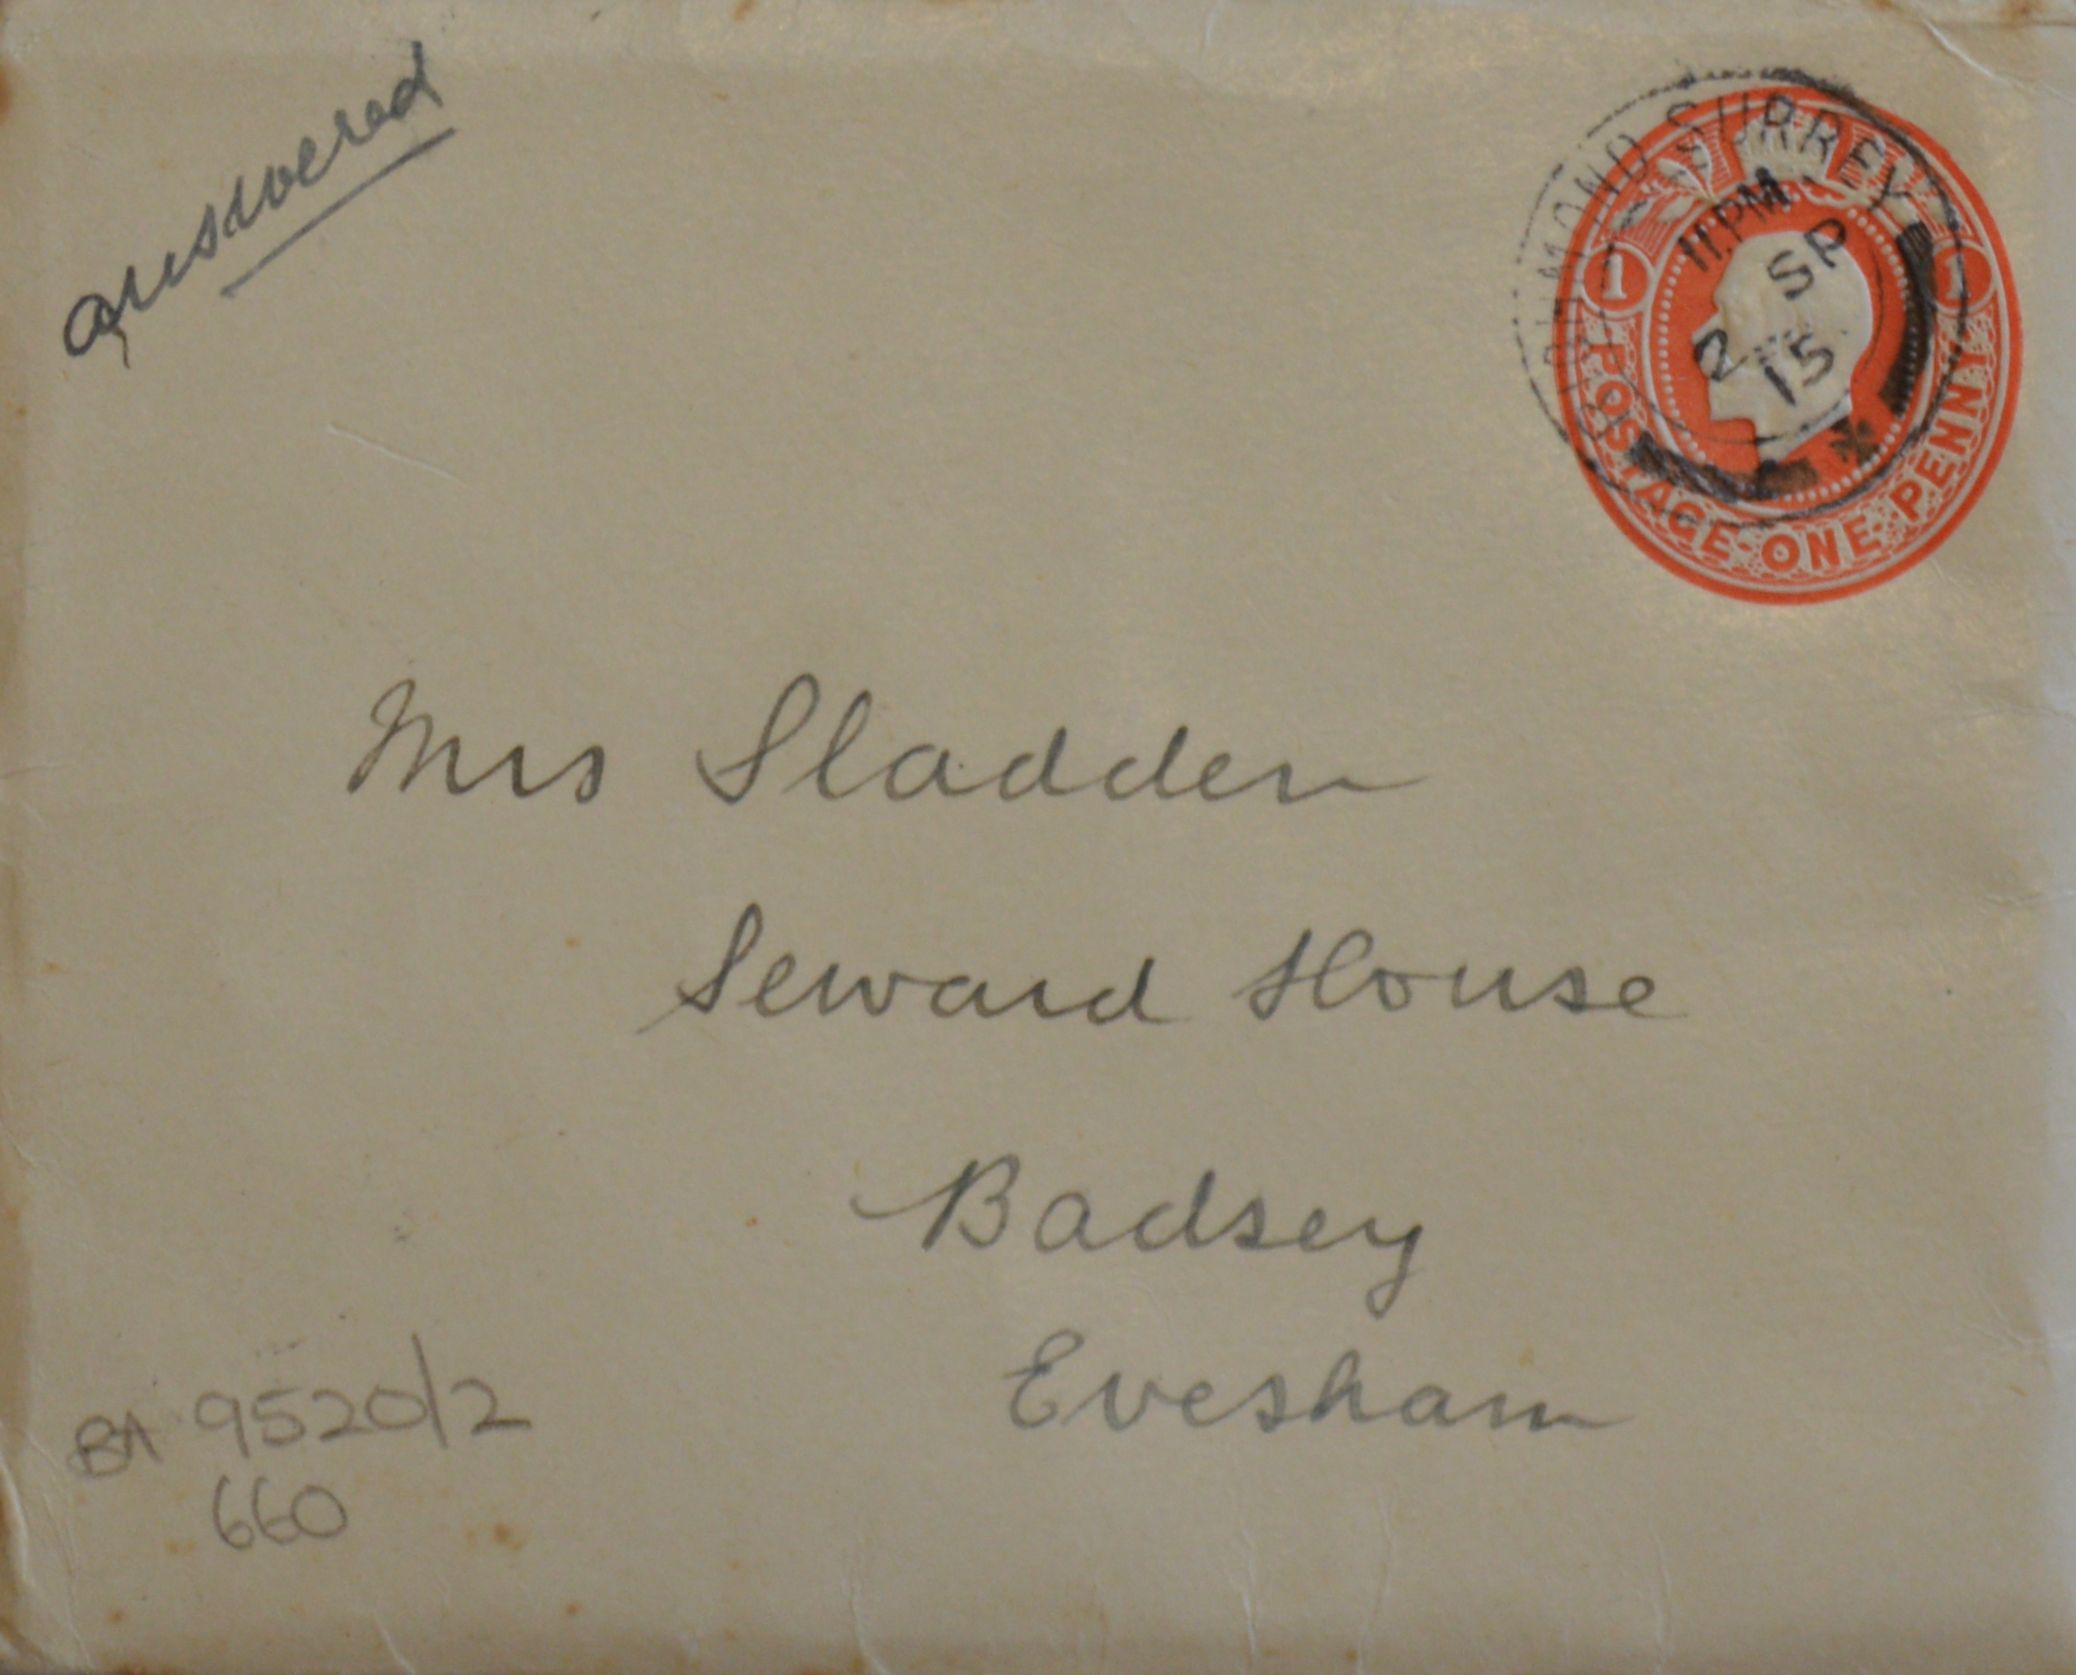 answered
RICHMOND SURREY
11.PM
2 SP
15
1 1
POSTAGE ONE PENNY
Mrs Sladden
Seward House
Badsey
Evesham
BA 9520/2
660